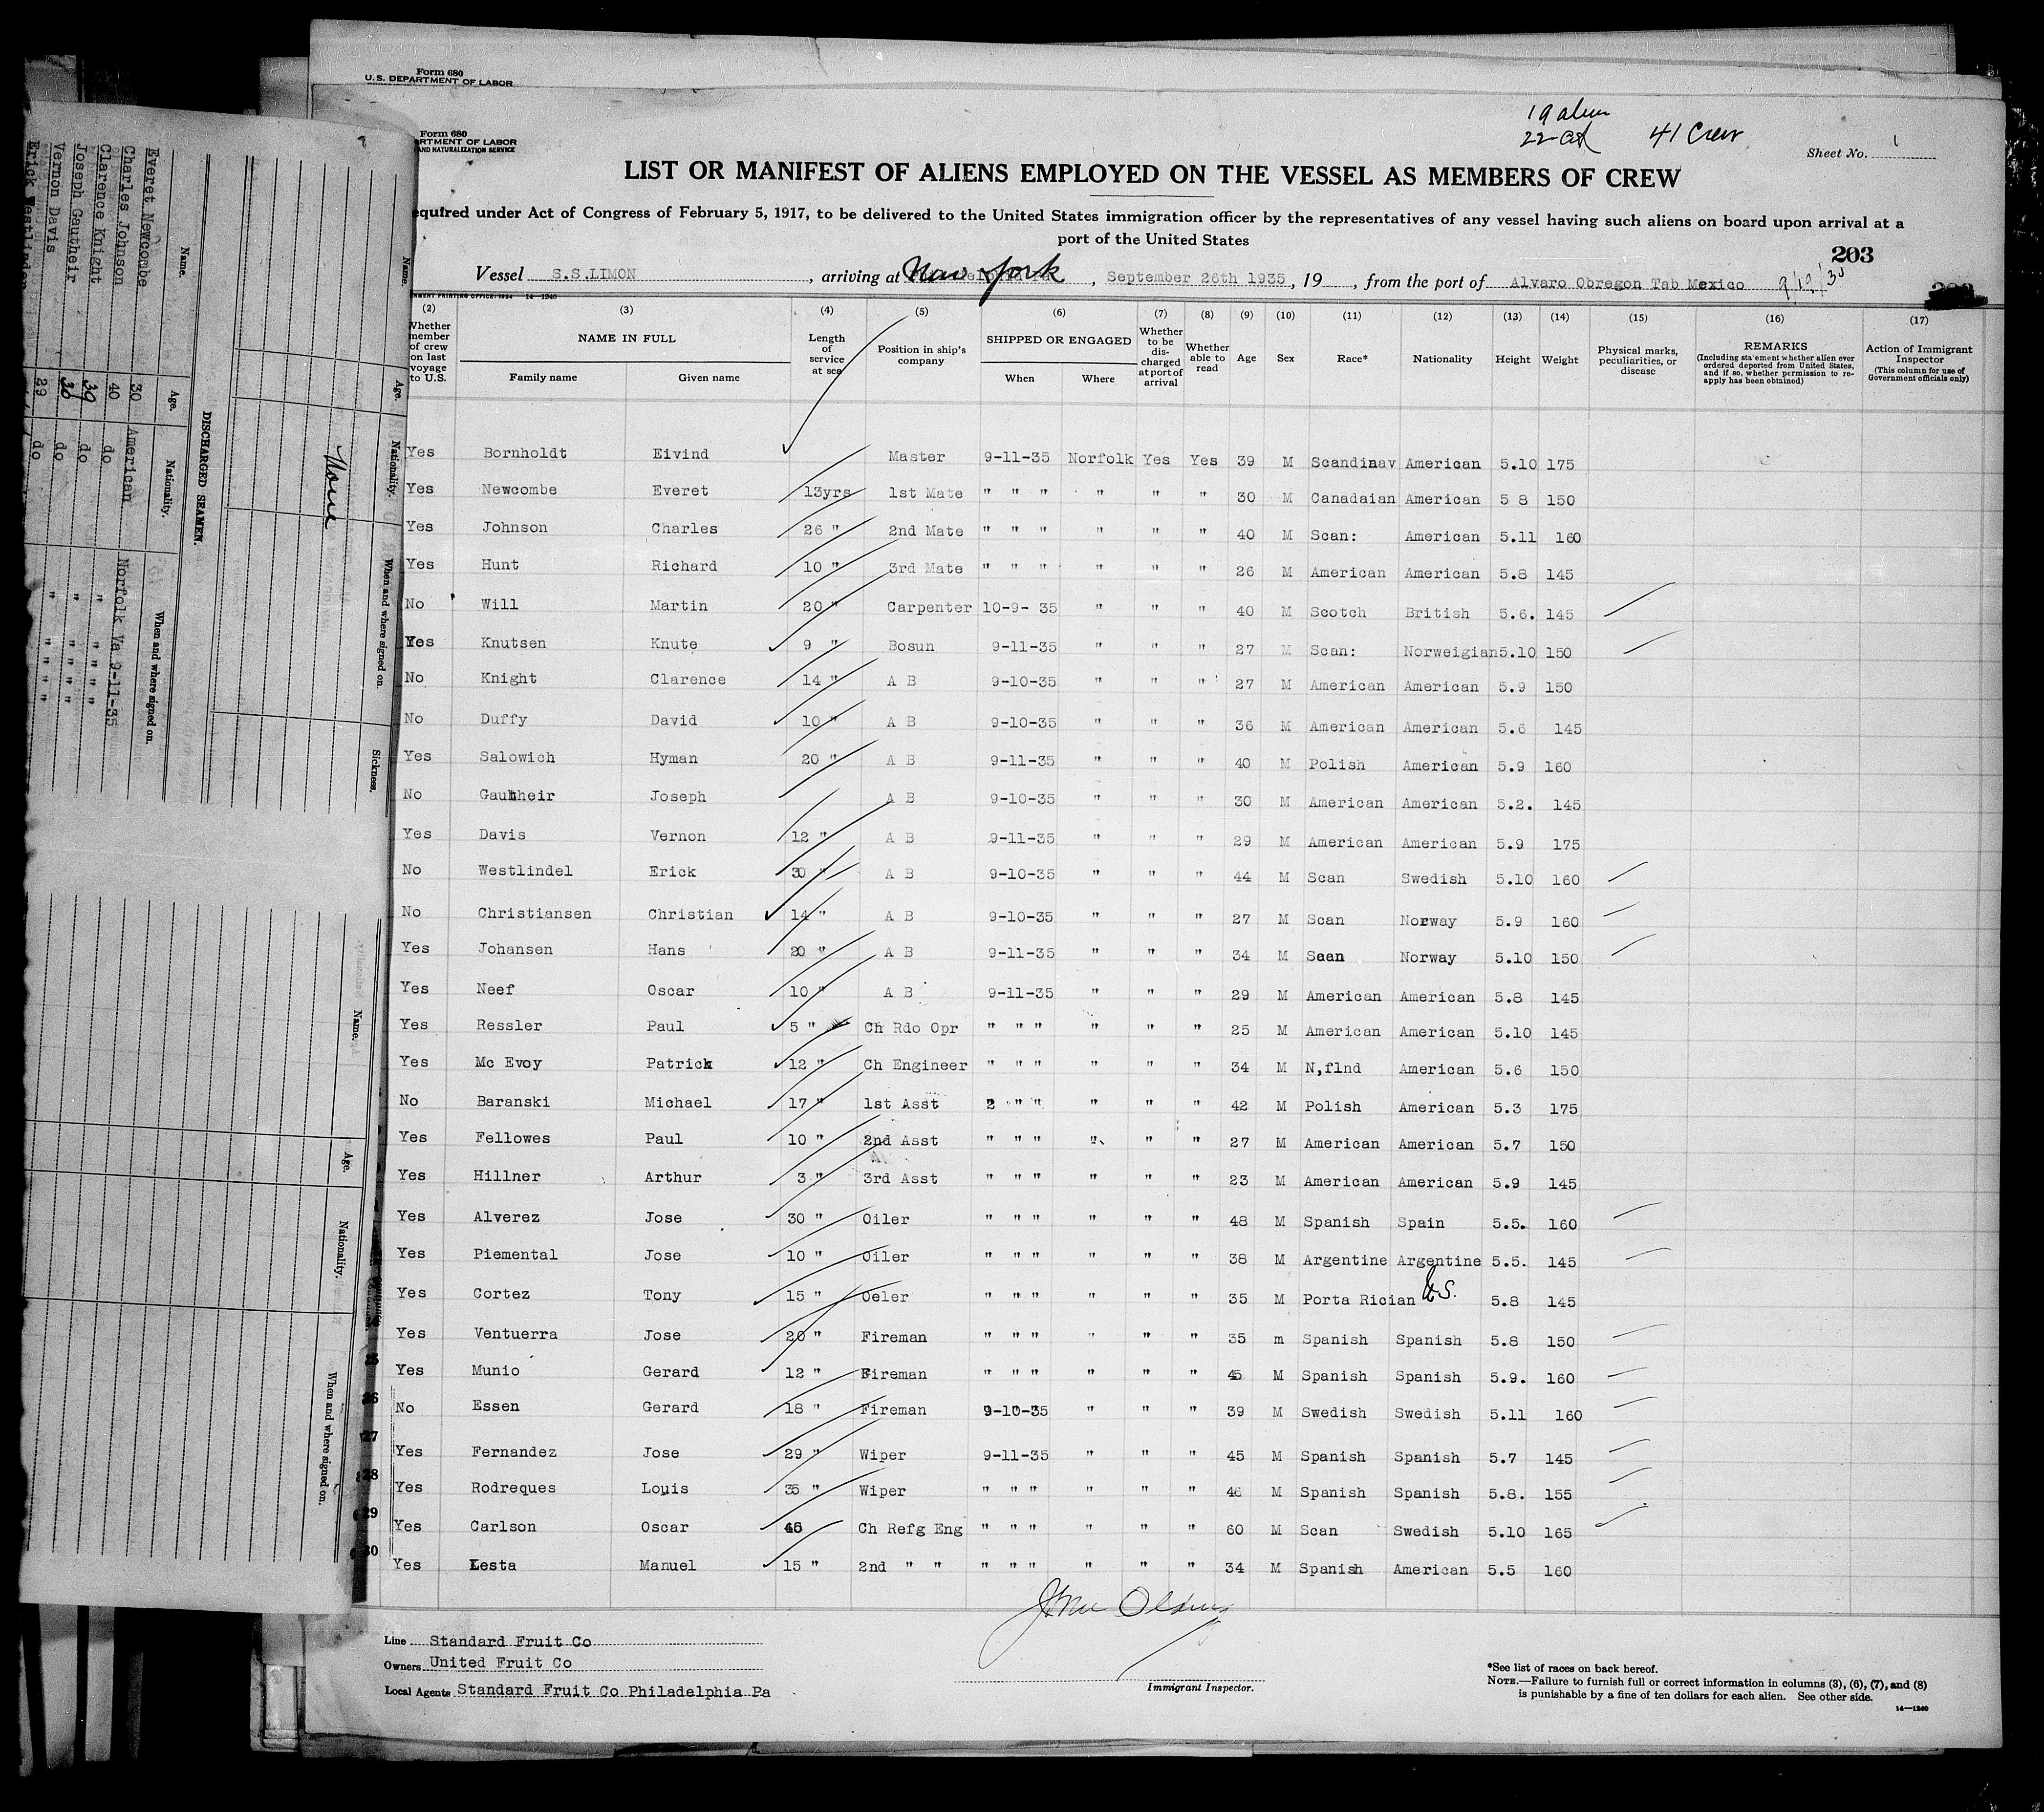 Form 680
U.S. DEPARTMENT OF LABOR
Form 680
RTMENT OF LABOR
AND NATURALIZATION SERVICE
19 alien
22-Cit
41 Crew
Sheet No. 1
LIST OR MANIFEST OF ALIENS EMPLOYED ON THE VESSEL AS MEMBERS OF CREW
equired under Act of Congress of February 5, 1917, to be delivered to the United States immigration officer by the representatives of any vessel having such aliens on board upon arrival at a
port of the United States
203
Vessel S.S.LIMON, arriving at New York, September 26th 1935, 19, from the port of Alvaro Obregon Tab Mexico
(2) (3) (4) (5) (6) (7) (8) (9) (10) (11) (12) (13) (14) (15) (16) (17)
Whether member of crew on last voyage to U.S. NAME IN FULL Family name Given name Length of service at sea Position in ship's company SHIPPED OR ENGAGED When Where Whether to be discharged at port of arrival Whether able to read Age Sex Race* Nationality Height Weight Physical marks, peculiarities, or disease REMARKS (Including statement whether alien ever ordered deported from United States, and if so, whether permission to re-apply has been obtained) Action of Immigrant Inspector (This column for use of Government officials only)
Yes Bornholdt Eivind Master 9-11-35 Norfolk Yes Yes 39 M Scandinav American 5.10 175
Yes Newcombe Everet 13yrs 1st Mate " " " " " " 30 M Canadaian American 5 8 150
Yes Johnson Charles 26 " 2nd Mate " " " " " " 40 M Scan: American 5.11 160
Yes Hunt Richard 10 " 3rd Mate " " " " " " 26 M American American 5.8 145
No Will Martin 20 " Carpenter 10-9- 35 " " " 40 M Scotch British 5.6. 145
Yes Knutsen Knute 9 " Bosun 9-11-35 " " " 27 M Scan: Norweigian 5.10 150
No Knight Clarence 14 " A B 9-10-35 " " " 27 M American American 5.9 150
No Duffy David 10 " A B 9-10-35 " " " 36 M American American 5.6 145
Yes Salowich Hyman 20 " A B 9-11-35 " " " 40 M Polish American 5.9 160
No Gautheir Joseph A B 9-10-35 " " " 30 M American American 5.2. 145
Yes Davis Vernon 12 " A B 9-11-35 " " " 29 M American American 5.9 175
No Westlindel Erick 30 " A B 9-10-35 " " " 44 M Scan Swedish 5.10 160
No Christiansen Christian 14 " A B 9-10-35 " " " 27 M Scan Norway 5.9 160
Yes Johansen Hans 20 " A B 9-11-35 " " " 34 M Scan Norway 5.10 150
Yes Neef Oscar 10 " A B 9-11-35 " " " 29 M American American 5.8 145
Yes Ressler Paul 5 " Ch Rdo Opr " " " " " " 25 M American American 5.10 145
Yes Mc Evoy Patrick 12 " Ch Engineer " " " " " " 34 M N,flnd American 5.6 150
No Baranski Michael 17 " 1st Asst 2 " " " " " 42 M Polish American 5.3 175
Yes Fellowes Paul 10 " 2nd Asst " " " " " " 27 M American American 5.7 150
Yes Hillner Arthur 3 " 3rd Asst " " " " " " 23 M American American 5.9 145
Yes Alverez Jose 30 " Oiler " " " " " " 48 M Spanish Spain 5.5. 160
Yes Piemental Jose 10 " Oiler " " " " " " 38 M Argentine Argentine 5.5. 145
Yes Cortez Tony 15 " Oeler " " " " " " 35 M Porta Rician U.S. 5.8 145
Yes Ventuerra Jose 20 " Fireman " " " " " " 35 m Spanish Spanish 5.8 150
Yes Munio Gerard 12 " Fireman " " " " " " 45 M Spanish Spanish 5.9. 160
No Essen Gerard 18 " Fireman 9-10-35 " " " 39 M Swedish Swedish 5.11 160
Yes Fernandez Jose 29 " Wiper 9-11-35 " " " 45 M Spanish Spanish 5.7 145
Yes Rodreques Louis 35 " Wiper " " " " " " 46 M Spanish Spanish 5.8. 155
Yes Carlson Oscar 45 Ch Refg Eng " " " " " " 60 M Scan Swedish 5.10 165
Yes Lesta Manuel 15 " 2nd " " " " " " " " 34 M Spanish American 5.5 160
Line Standard Fruit Co
Owners United Fruit Co
Local Agents Standard Fruit Co Philadelphia Pa
Immigrant Inspector.
*See list of races on back hereof.
NOTE.—Failure to furnish full or correct information in columns (3), (6), (7), and (8)
is punishable by a fine of ten dollars for each alien. See other side.
14—1240
Name. Age. Nationality. When and where signed on. Sickness.
None
DISCHARGED SEAMEN.
Name. Age. Nationality. When and where signed on.
Everet Newcombe 30 American Norfolk Va 9-11-35
Charles Johnson 40 do " " " "
Clarence Knight
Joseph Gautheir 39 do " " " "
Vernon Davis 30 do " " " "
29 do " " " "
Name. Age. Nationality. When and where signed on.
25
26
27
28
29
30